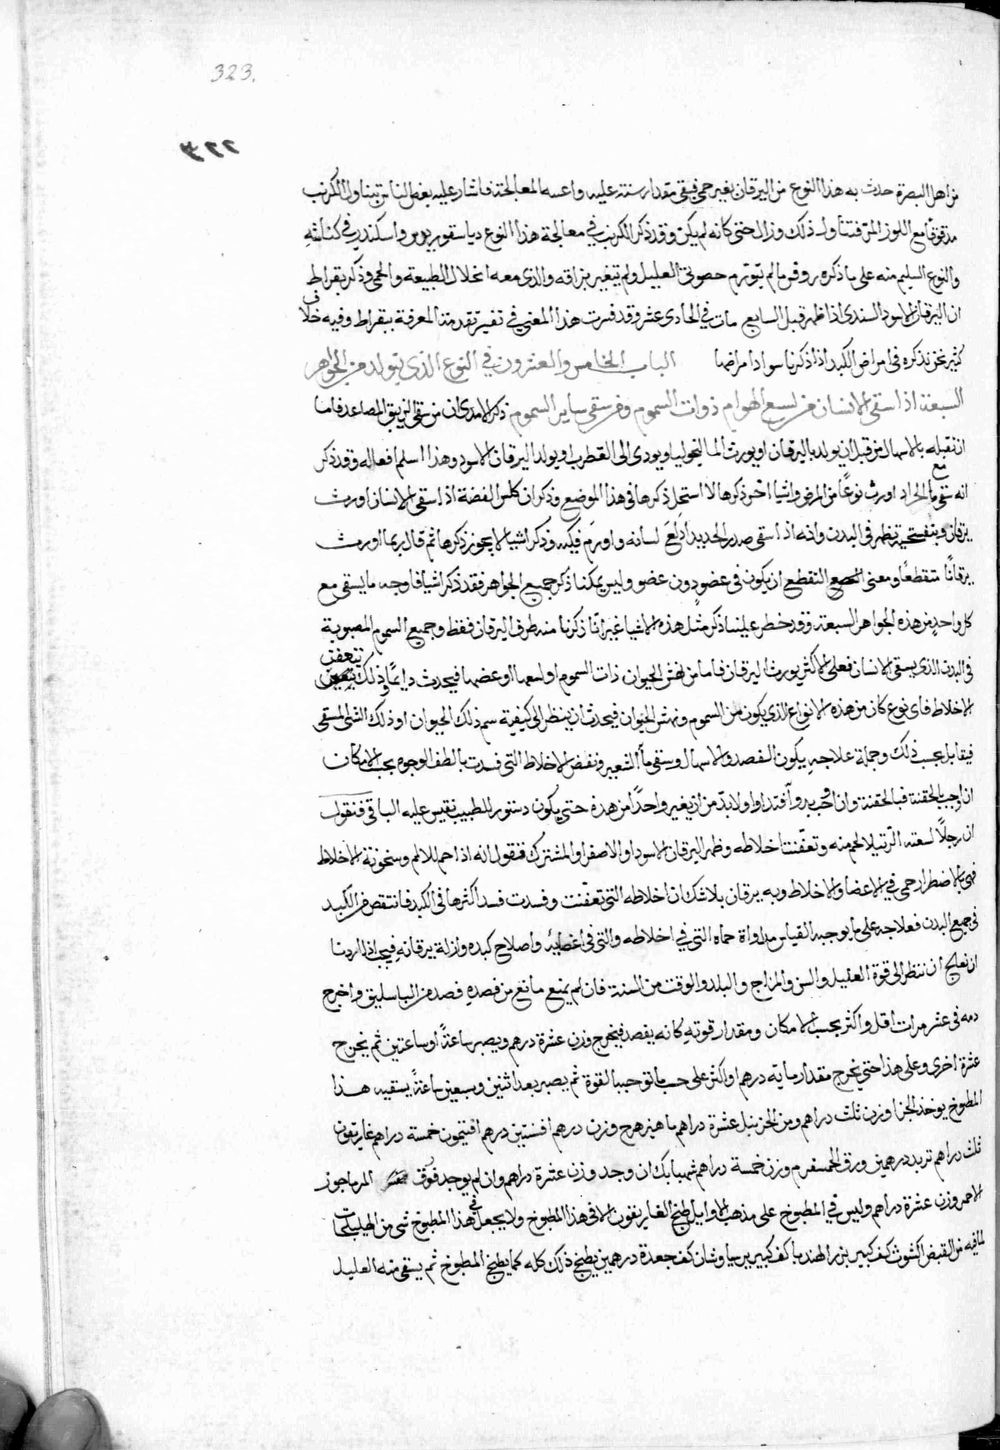 323.
٣٢٢
من اهل البصرة حدث به هذا النوع من اليرقان بغير حمى فبقى مقدار سنة عليه واعيته المعالجة فاشار عليه بعض الناس بتناول الكرنب
مدقوقا مع اللوز المر فتناول ذلك وزال حتى كانه لم يكن وقد ذكر الكرنب في معالجة هذا النوع دياسقوريدوس واسكندر في كناشه
والنوع السليم منه على ما ذكره روفس ما لم يتورم العليل ولم تتغير بزاقه والذى معه انحلال الطبيعة والحمى وذكر بقراط
ان اليرقان الاسود السندى اذا ظهر قبل السابع مات في الحادى عشر وقد فسرت هذا المعنى في تفسير تقدمة المعرفة ببقراط وفيه خلاف
كثير نحن نذكره في امراض الكبد اذا ذكرنا سوادا مراضها الباب الخامس والعشرون في النوع الذى يتولد من الجواهر
السبعة اذا سقى الانسان من لسع الهوام ذوات السموم وفي سقى ساير السموم ذكر الامدى ان من سقى الزيبق المصاعد فاما
ان تقبله بالاسهال من قبل ان يولد باليرقان او يورث الماليخوليا ويودى الى القطرب او يولد اليرقان الاسود وهذا اسلم افعاله وقد ذكر
انه سقى مع ما الحداد اورث نوعا من المرض واشيا اخر ذكرها لا استحل ذكرها في هذا الموضع وذكر ان كلس الفضة اذا سقى الانسان اورث
يرقان وبتفتحير تظهر في البدن وانه اذا سقى صدى الحديد ادلع لسانه واورم فكيه وذكر اشيا لا يجوز ذكرها ثم قال ربما اورث
يرقانا متقطعا ومعنى التقطع ان يكون في عضو دون عضو وليس يمكنا ذكر جميع الجواهر فقد ذكر اشياقا وجه ما يسقى مع
كل واحد من هذه الجواهر السبعة وقد خطر علينا ذكر مثل هذه الاشيا غير انا ذكرنا منه طرف اليرقان فقط وجميع السموم المصبوبة
في البدن الذى يسقى الانسان فعلى الاكثر يورث اليرقان فاما من نهش الحيوان ذات السموم او لسعها او عضها فيحدث دايما وذلك بتعفن
الاخلاط فاى نوع كان من هذه الانواع الذى يكون من السموم ونهش الحيوان فيحب ان ينظر الى كيفية سم ذلك الحيوان او ذلك الشى المسقى
فيقابل بحسب ذلك وجملة علاجه يكون الفصد والاسهال وسقى ما الشعير ونفض الاخلاط التى فسدت بالطف الوجوه بحسب الامكان
ان وجب الحقنة فبالحقنة وان ولابد من ان يغير واحدا من هذه حتى يكون دستور للطبيب يقيس عليه الباقى فنقول
ان رجلا لسعته الرتيلا لحم منه وتعفنت اخلاطه وظهر اليرقان الاسود او الاصفر او المشترك فنقول انه اذا حم للالم وسخونة الاخلاط
فهى بالاضطرار حمى في الاعضا والاخلاط وبه يرقان بلا شك ان اخلاطه التى تعفنت وفسدت فسد اكثرها في الكبد فانتقص من الكبد
في جميع البدن فعلاجه على ما يوجبه القياس مداواة حماه التى في اخلاطه والتى في اعضايه واصلاح كبده وازلة يرقانه فيجب اذا اردنا
ان نعالج ان ننظر الى قوة العليل والسن والمزاج والبلد والوقت من السنة فان لم يمنع مانع من فصده فصده من الباسليق واخرج
دمه في عشر مرات اقل واكثر بحسب الامكان ومقدار قوته كانه يفصد فيخرج وزن عشرة درهم ويصبر ساعة او ساعتين ثم يخرج
عشرة اخرى وعلى هذا حتى يخرج مقدار ماية درهم او اكثر على حسب ما توجبه القوة ثم يصبر بعد اثنين وسبعين ساعة يسقيه هذا
المطبوخ يوخذ وزن ثلث دراهم ومن عشرة دراهم ماهيزهرج وزن درهم افسنتين درهم افتيمون خمسة دراهم غاريقون
ثلث دراهم تربد درهمين ورق الحمسفرم وزن خمسة دراهم شهبابك ان وجد وزن عشرة دراهم وان لم يوجد فوق المرماجوز
الاحمر وزن عشرة دراهم وليس في المطبوخ على مذهب الاوايل طبخ الغاريقون الا في هذا المطبوخ ولا يجعل في هذا المطبوخ شى من الهليلجات
لما فيه من القبض اكشوث كف كبير بزر الهندبا كف كبير برسياوشان كف جعدة درهمين يطبخ ذلك كله كما يطبخ المطبوخ ثم يسقى منه العليل